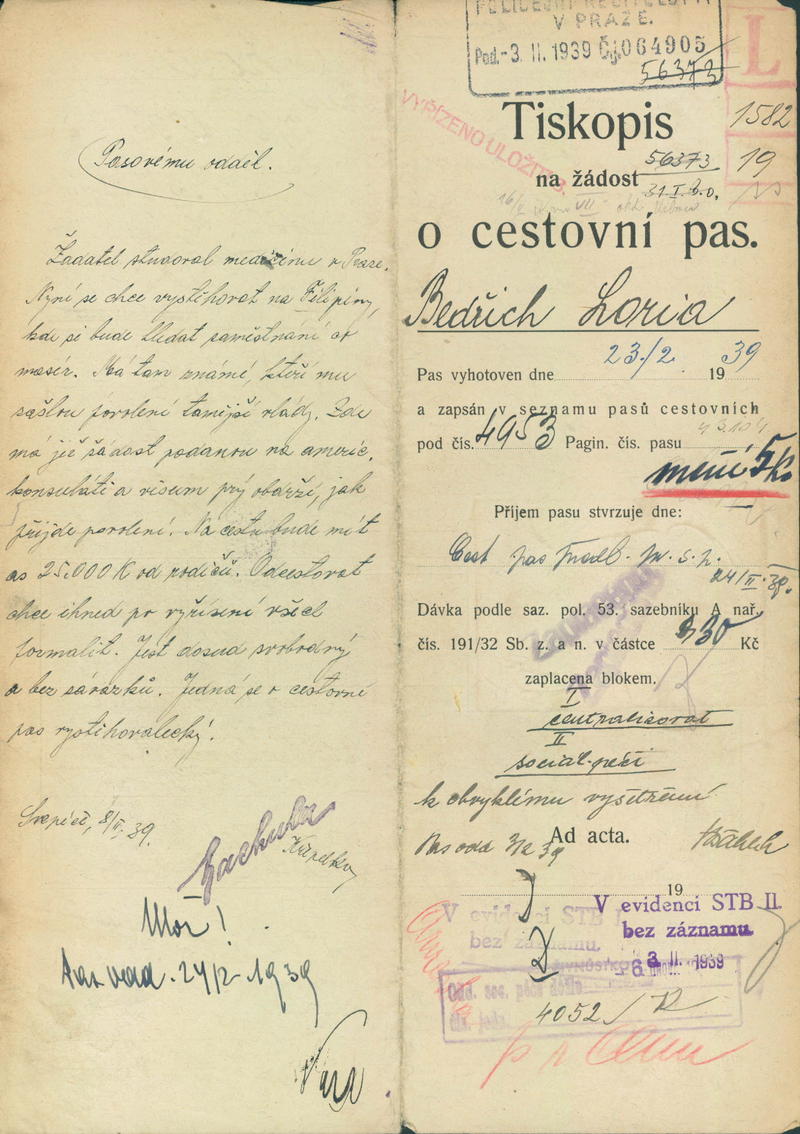 Pasovému odděl.
Žadatel studoval medicinu v Praze.
Nyní se chce vystěhovat na Filipiny,
kde si bude hledat zaměstnání co
masér. Má tam známé, kteří mu
zašlou povolení tamější vlády. Zde
má již žádost podanou na americ.
konsuláti a visum prý obdrží, jak
přijde povolení. Na cestu bude mít
as 25.000 K od rodičů. Odcestovat
chce ihned po vyřízení všech
formalit. Jest dosud svobodný
a bez závazků. Jedná se o cestovní
pas vystěhovalecký.
8/II. 39.
Pas odd. 24/2 - 1939
POLICEJNÍ ŘEDITELSTVÍ
V PRAZE.
Pod. - 3. II. 1939 Čj. 064905
56373
L
1582
19
VYŘÍZENO ULOŽIT
Tiskopis
na žádost
56373
31.I.
o cestovní pas.
Bedřich Loria
Pas vyhotoven dne 23/2. 1939
a zapsán v seznamu pasů cestovních
pod čís. 4953 Pagin. čís. pasu
Příjem pasu stvrzuje dne:
Cest pas
24/II. 39.
Dávka podle saz. pol. 53. sazebníku A nař.
čís. 191/32 Sb. z. a n. v částce 30 Kč
zaplacena blokem.
I
centralisovat
II
social. péči
k obvyklému vyšetření
Ad acta.
Pas odd 3/2 39
19
V evidenci STB I.
bez záznamu.
V evidenci STB II.
bez záznamu.
3. II. 1939
Odd. soc. péče došlo
4052